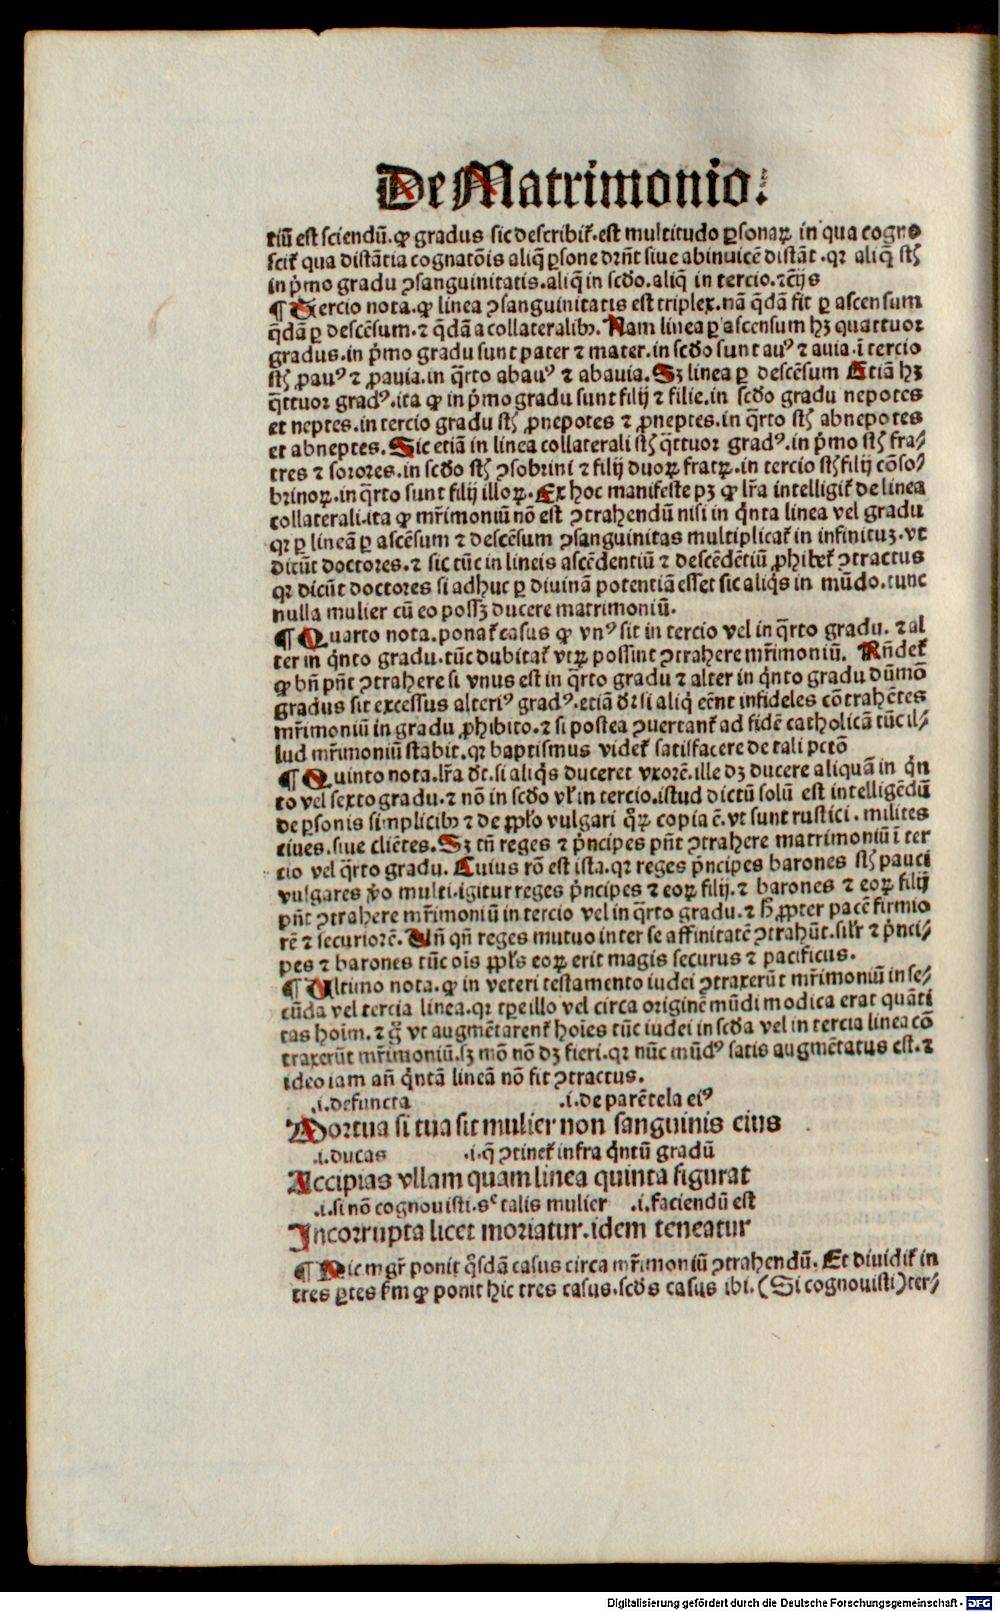 De Matrimonio.
tiū est sciendū. ꝙ gradus sic describit᷑. est multitudo ꝑsonaꝝ in qua cogno
scit᷑ qua distātia cognatōis aliq̄ ꝑsone dr̄nt siue abinuicē distāt. qꝛ aliq̄ st᷒
in pͥmo gradu ꝯsanguinitatis. aliq̄ in scd̄o. aliq̄ in tercio. ⁊cͥs
¶ Tercio nota. ꝙ linea ꝯsanguinitatis est triplex. nā q̄dā fit ꝑ ascensum
q̄dā ꝑ descēsum. ⁊ q̄dā a collateralibꝰ. Nam linea ꝑ ascensum hꝫ quattuor
gradus. in pͥmo gradu sunt pater ⁊ mater. in scd̄o sunt auꝰ ⁊ auia. ī tercio
st᷒ ꝓauꝰ ⁊ ꝓauia. in q̄rto abauꝰ ⁊ abauia. Sꝫ linea ꝑ descēsum Etiā hꝫ
q̄ttuor gradꝰ. ita ꝙ in pͥmo gradu sunt filij ⁊ filie. in scd̄o gradu nepotes
et neptes. in tercio gradu st᷒ ꝓnepotes ⁊ ꝓneptes. in q̄rto st᷒ abnepotes
et abneptes. Sic etiā in linea collaterali st᷒ q̄ttuor gradꝰ. in pͥmo st᷒ fra/
tres ⁊ sorores. in scd̄o st᷒ ꝯsobrini ⁊ filij duoꝝ fratꝝ. in tercio st᷒ filij cōso/
brinoꝝ. in q̄rto sunt filij illoꝝ. Ex hoc manifeste pꝫ ꝙ lr̄a intelligit᷑ de linea
collaterali. ita ꝙ mr̄imoniū nō est ꝯtrahendū nisi in qͥnta linea vel gradu
qꝛ ꝑ lineā ꝑ ascēsum ⁊ descēsum ꝯsanguinitas multiplicat᷑ in infinituꝫ. vt
dicūt doctores. ⁊ sic tūc in lineis ascēdentiū ⁊ descēdētiū ꝓhibet᷑ ꝯtractus
qꝛ dicūt doctores si adhuc ꝑ diuinā potentiā esset sic aliqͥs in mūdo. tunc
nulla mulier cū eo possꝫ ducere matrimoniū.
¶ Quarto nota. ponat᷑ casus ꝙ vnꝰ sit in tercio vel in q̄rto gradu. ⁊ al
ter in qͥnto gradu. tūc dubitat᷑ vtꝝ possint ꝯtrahere mr̄imoniū. Rn̄det᷑
ꝙ bn̄ pn̄t ꝯtrahere si vnus est in q̄rto gradu ⁊ alter in qͥnto gradu dūmō
gradus sit excessus alteriꝰ gradꝰ. etiā dꝛ si aliqͥ eēnt infideles cōtrahētes
mr̄imoniū in gradu ꝓhibito. ⁊ si postea ꝯuertant᷑ ad fidē catholicā tūc il/
lud mr̄imoniū stabit. qꝛ baptismus videt᷑ satisfacere de tali pctō
¶ Quinto nota. lr̄a dc̄. si aliqͥs duceret vxorē. ille dꝫ ducere aliquā in qͥn
to vel sexto gradu. ⁊ nō in scd̄o vl̓ in tercio. istud dictū solū est intelligēdū
de ꝑsonis simplicibꝰ ⁊ de ꝓpl̓o vulgari qͦꝝ copia ē. vt sunt rustici. milites
ciues. siue cliētes. Sꝫ tn̄ reges ⁊ pͥncipes pn̄t ꝯtrahere matrimoniū ī ter
cio vel q̄rto gradu. Cuius rō est ista. qꝛ reges pͥncipes barones st᷒ pauci
vulgares v̓o multi. igitur reges pͥncipes ⁊ eoꝝ filij. ⁊ barones ⁊ eoꝝ filij
pn̄t ꝯtrahere mr̄imoniū in tercio vel in q̄rto gradu. ⁊ h̄ ꝓpter pacē firmio
rē ⁊ securiorē. Un̄ qn̄ reges mutuo inter se affinitatē ꝯtrahūt. sil̓r ⁊ pͥnci/
pes ⁊ barones tūc oīs ꝓpl̓s eoꝝ erit magis securus ⁊ pacificus.
¶ Ultimo nota. ꝙ in veteri testamento iudei ꝯtraxerūt mr̄imoniū in se/
cūda vel tercia linea. qꝛ tꝑe illo vel circa originē mūdi modica erat quāti
tas hoīm. ⁊ gͦ vt augmētarent᷑ hoīes tūc iudei in scd̄a vel in tercia linea cō
traxerūt mr̄imoniū. sꝫ mō nō dꝫ fieri. qꝛ nūc mūdꝰ satis augmētatus est. ⁊
ideo iam an̄ qͥntā lineā nō fit ꝯtractus.
.i. defuncta .i. de parētela eiꝰ
Mortua si tua sit mulier non sanguinis eius
.i. ducas .i. q̄ ꝯtinet᷑ infra qͥntū gradū
Accipias vllam quam linea quinta figurat
.i. si nō cognouisti. sͨ talis mulier .i. faciendū est
Incorrupta licet moriatur. idem teneatur
¶ Hic mgr̄ ponit qͦsdā casus circa mr̄imoniū ꝯtrahendū. Et diuidit᷑ in
tres ꝑtes km̄ ꝙ ponit hic tres casus. scd̄s casus ibi. (Si cognouisti) ter/
Digitalisierung gefördert durch die Deutsche Forschungsgemeinschaft - DFG